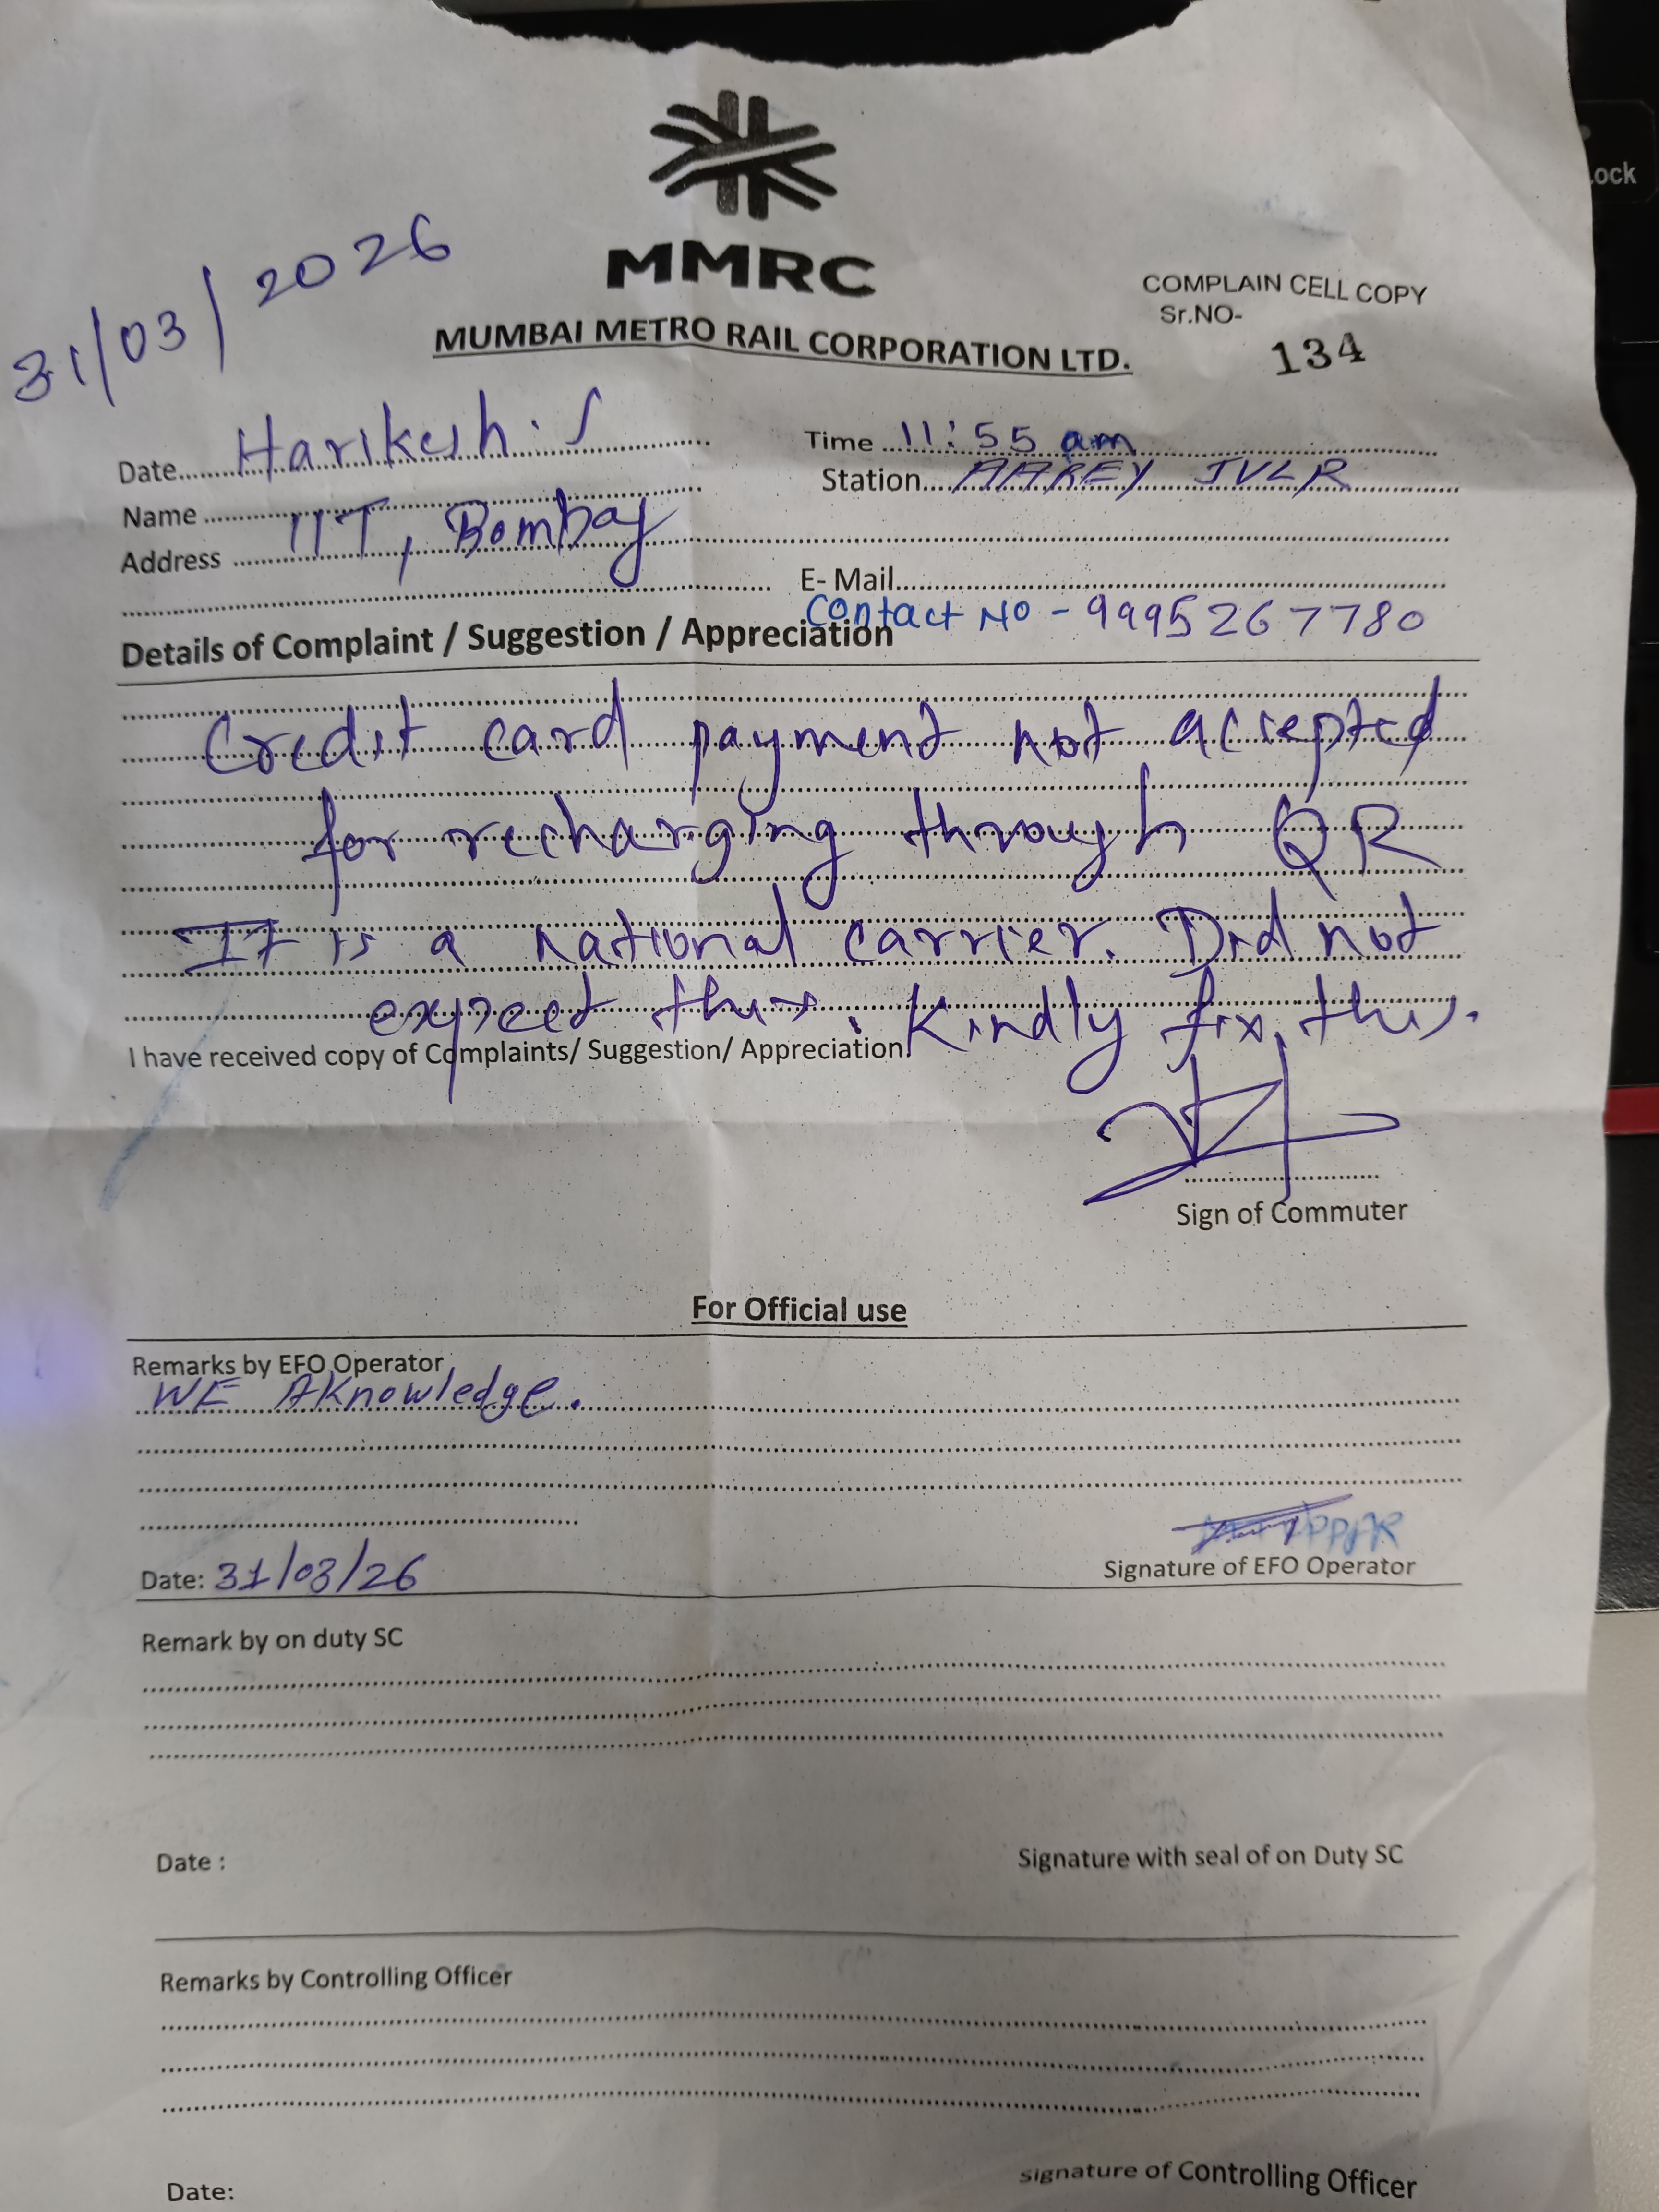 ock
MMRC
MUMBAI METRO RAIL CORPORATION LTD.
COMPLAIN CELL COPY
Sr.NO-
134
31/03/2026
Date Harikesh. S
Time 11:55 am
Name
Station AAREY JVLR
Address IIT, Bombay
E- Mail
Contact No - 9995267780
Details of Complaint / Suggestion / Appreciation
Credit card payment not accepted
for recharging through QR
It is a national carrier. Did not
expect this. Kindly fix this.
I have received copy of Complaints/ Suggestion/ Appreciation.
Sign of Commuter
For Official use
Remarks by EFO Operator
WE AKnowledge.
Date: 31/03/26
Signature of EFO Operator
Remark by on duty SC
Date :
Signature with seal of on Duty SC
Remarks by Controlling Officer
Date:
signature of Controlling Officer